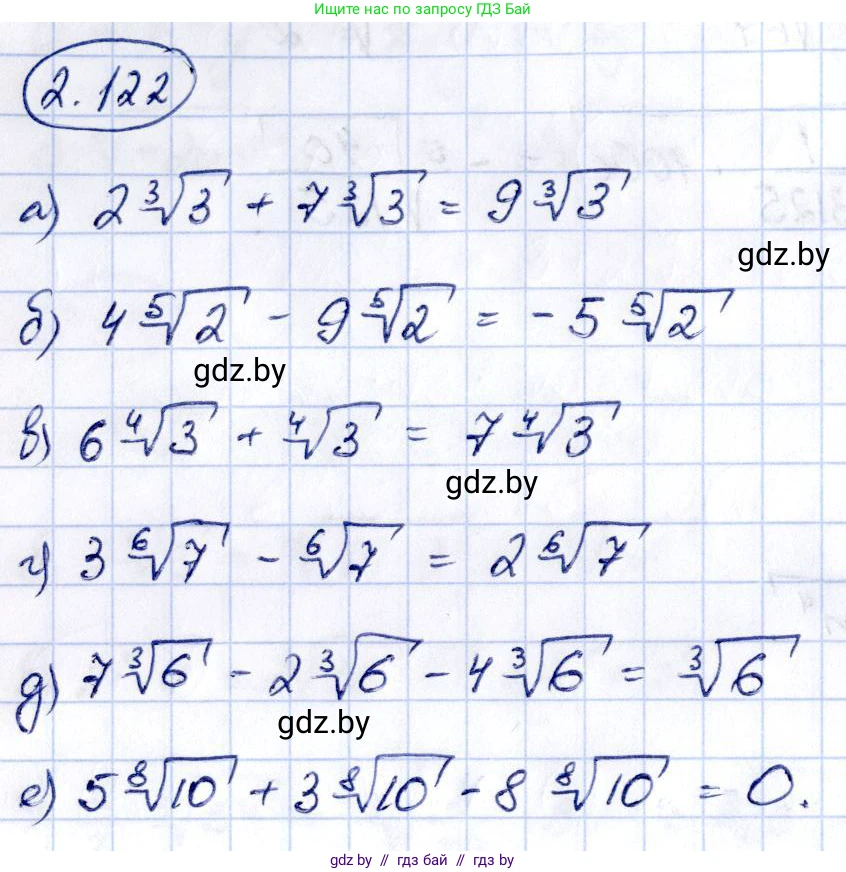 Ищите нас по запросу ГДЗ Бай
2.122
а) 2∛3 + 7∛3 = 9∛3
gdz.by
б) 4 ⁵√2 - 9 ⁵√2 = - 5 ⁵√2
gdz.by
в) 6 ⁴√3 + ⁴√3 = 7 ⁴√3
gdz.by
г) 3 ⁶√7 - ⁶√7 = 2 ⁶√7
д) 7 ³√6 - 2 ³√6 - 4 ³√6 = ³√6
gdz.by
е) 5 ⁸√10 + 3 ⁸√10 - 8 ⁸√10 = 0.
gdz by // гдз бай // гдз by